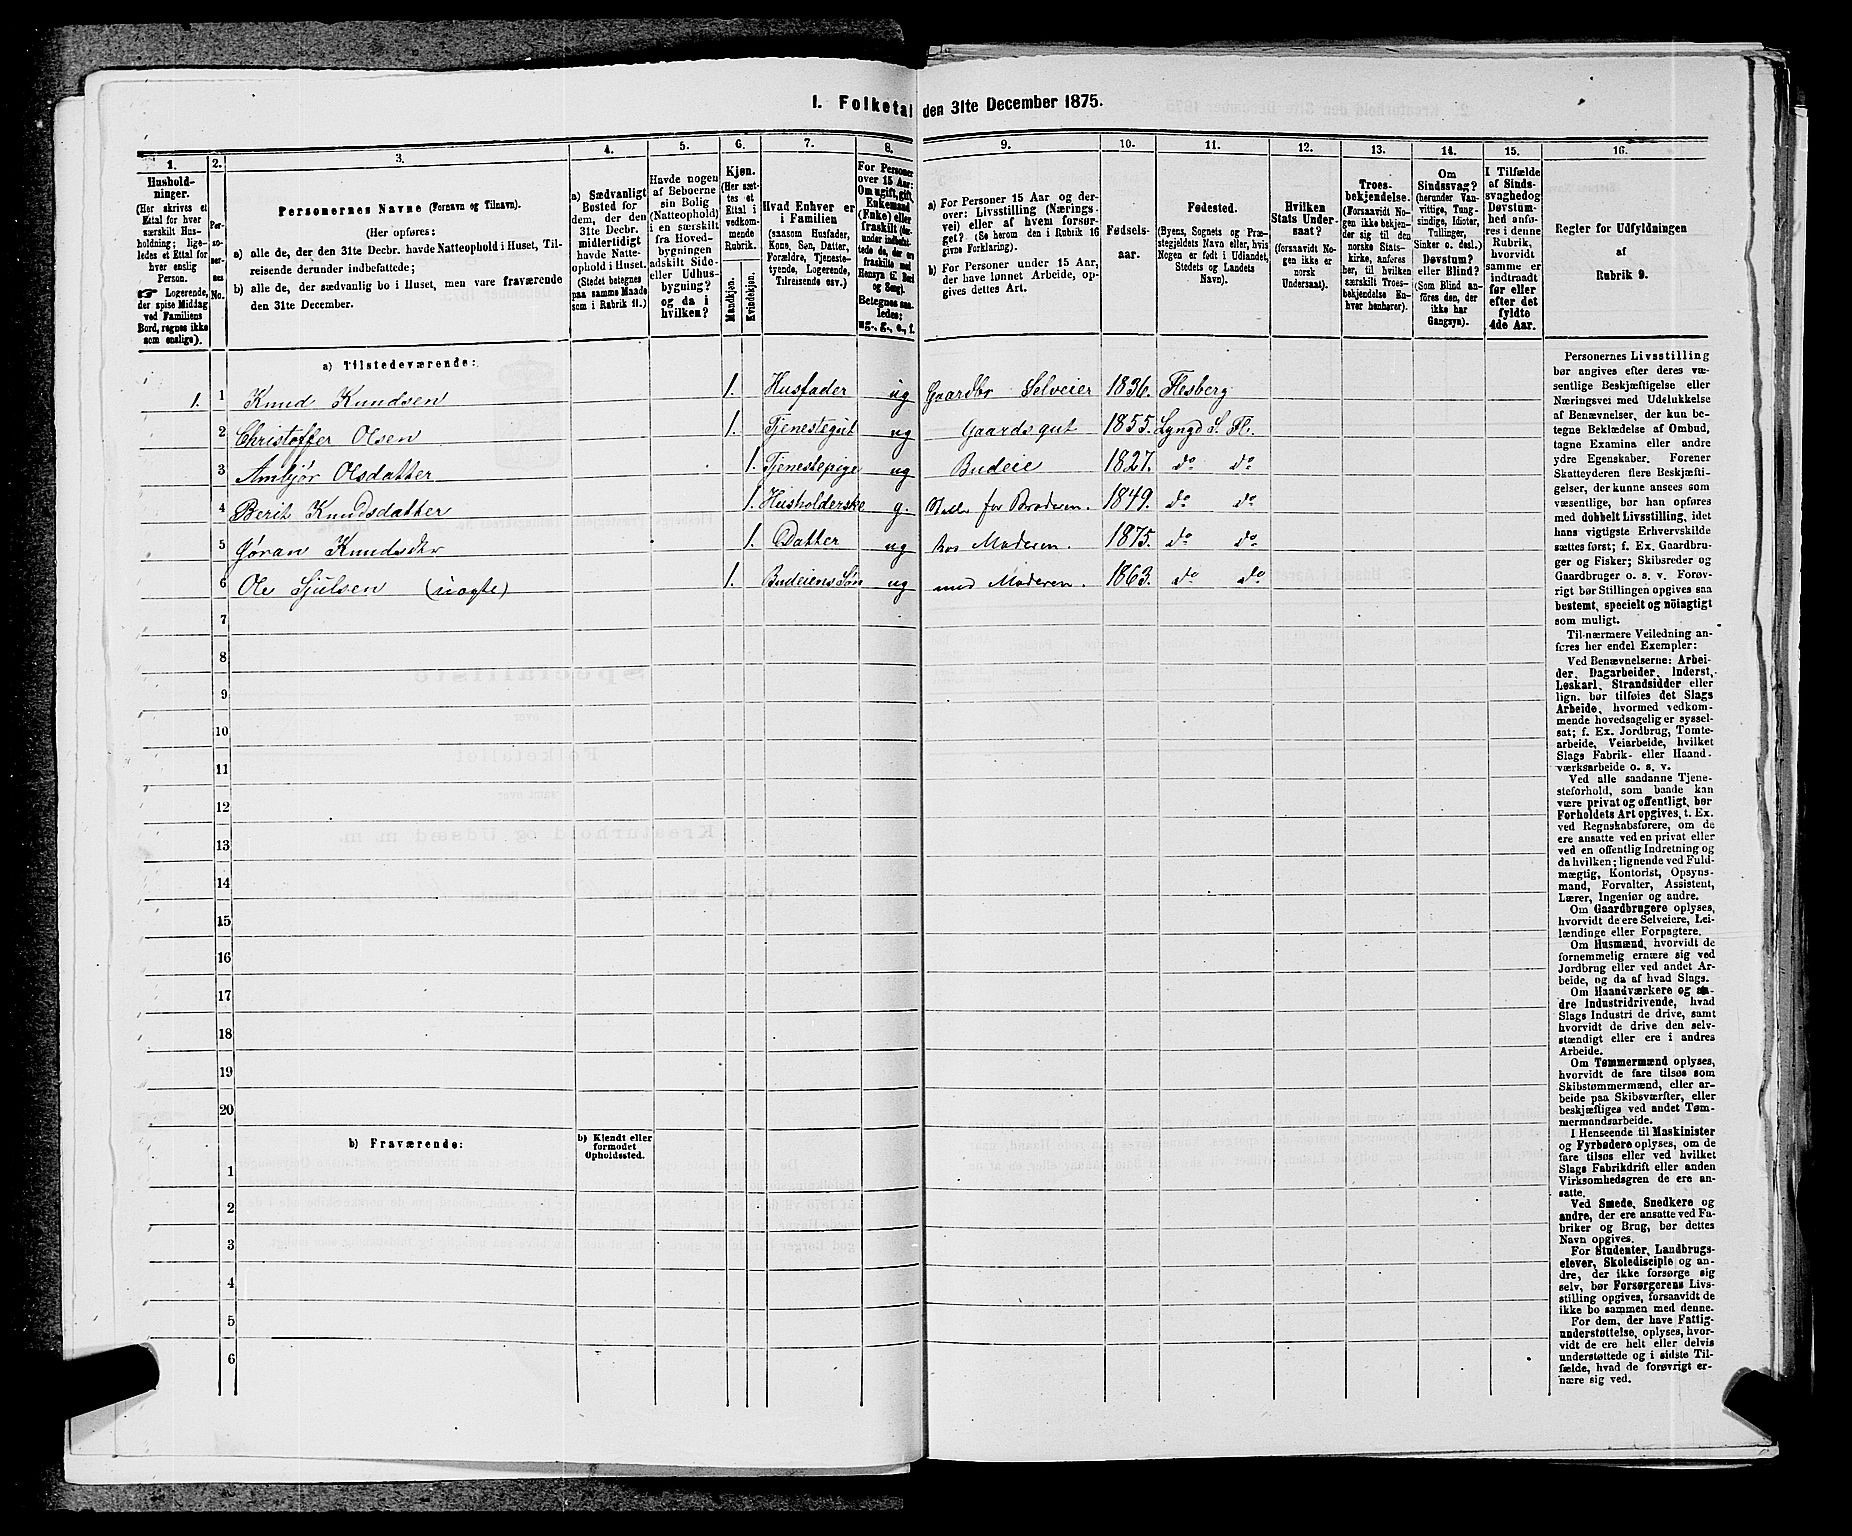 1. Folketal den 31te December 1875.
1.
Hushold-
ninger.
(Her skrives et
Ettal for hver
særskilt Hus-
holdning; lige-
ledes et Ettal for
hver enslig
Person.
☞ Logerende,
der spise Middag
ved Familiens
Bord, regnes ikke
som enslige).
2.
Per-
so-
ner-
nes
No.
3.
Personernes Navne (Fornavn og Tilnavn).
(Her opføres:
a) alle de, der den 31te Decbr. havde Natteophold i Huset, Til-
reisende derunder indbefattede;
b) alle de, der sædvanlig bo i Huset, men vare fraværende
den 31te December.
4.
a) Sædvanligt
Bosted for
dem, der den
31te Decbr.
midlertidigt
havde Natte-
ophold i Huset.
(Stedet betegnes
paa samme Maade
som i Rubrik 11.)
5.
Havde nogen
af Beboerne
sin Bolig
(Natteophold)
i en særskilt
fra Hoved-
bygningen
adskilt Side-
eller Udhus-
bygning?
og da i
hvilken?
6.
Kjøn.
(Her sæt-
tes et
Ettal i
vedkom-
mende
Rubrik.
Mandkjøn.
Kvindekjøn.
7.
Hvad Enhver er
i Familien
(saasom Husfader,
Kone, Søn, Datter,
Forældre, Tjeneste-
tyende, Logerende,
Tilreisende osv.)
8.
For Personer
over 15 Aar:
Om ugift, gift,
Enkemand
(Enke) eller
fraskilt (for-
under indbefat-
tede de, der ere
fraskilte med
Hensyn til Bord
og Seng).
Betegnes saa-
ledes:
ug., g., e., f.
9.
a) For Personer 15 Aar og der-
over: Livsstilling (Nærings-
vei) eller af hvem forsør-
get? (Se herom den i Rubrik 16
givne Forklaring).
b) For Personer under 15 Aar,
der have lønnet Arbeide, op-
gives dettes Art.
10.
Fødsels-
aar.
11.
Fødested.
(Byens, Sognets og Præ-
stegjeldets Navn eller, hvis
Nogen er født i Udlandet,
Stedets og Landets
Navn).
12.
Hvilken
Stats Under-
saat?
(forsaavidt No-
gen ikke er
norsk
Undersaat).
13.
Troes-
bekjendelse.
(Forsaavidt No-
gen ikke bekjen-
der sig til den
norske Stats-
kirke, anføres
her, til hvilken
særskilt Troes-
bekjendelse En-
hver henhører).
14.
Om
Sindssvag?
(herunder Van-
vittige, Tung-
sindige, Idioter,
Tullinger,
Sinker o. desl.)
Døvstum?
eller Blind?
(Som Blind an-
føres den, der
ikke har
Gangsyn).
15.
I Tilfælde
af Sinds-
svaghed og
Døvstum-
hed anfø-
res i denne
Rubrik,
hvorvidt
samme er
indtraadt
før eller
efter det
fyldte
4de Aar.
16.
Regler for Udfyldningen
af
Rubrik 9.
a) Tilstedeværende:
1. 1 Knud Knudsen 1. Husfader ug Gaardbr Selveier 1836. Flesberg
2 Christoffer Olsen 1. Tjenestegut ug Gaardsgut 1855. Lyngd S. Fl.
3 Ambjør Olsdatter 1. Tjenestepige ug Budeie 1827. do do
4 Berit Knudsdatter 1. Husholderske g. for Broderen. 1849. do do
5 Gøran Knudsdtr 1. Datter ug hos Moderen. 1875. do do
6 Ole Sjulsen (uægte) 1. Budeiens Søn ug med Moderen. 1863. do do
7
8
9
10
11
12
13
14
15
16
17
18
19
20
b) Fraværende:
b) Kjendt eller
formodet
Opholdssted.
1
2
3
4
5
6
Personernes Livsstilling
bør angives efter deres væ-
sentlige Beskjæftigelse eller
Næringsvei med Udelukkelse
af Benævnelser, der kun be-
tegne Beklædelse af Ombud,
tagne Examina eller andre
ydre Egenskaber. Forener
Skatteyderen flere Beskjæfti-
gelser, der kunne ansees som
væsentlige, bør han opføres
med dobbelt Livsstilling, idet
hans vigtigste Erhvervskilde
sættes først; f. Ex. Gaardbru-
ger og Fisker; Skibsreder og
Gaardbruger o. s. v. Forøv-
rigt bør Stillingen opgives saa
bestemt, specielt og nøiagtigt
som muligt.
Til nærmere Veiledning an-
føres her endel Exempler:
Ved Benævnelserne: Arbei-
der, Dagarbeider, Inderst,
Løskarl, Strandsidder eller
lign. bør tilføies det Slags
Arbeide, hvormed vedkom-
mende hovedsagelig er syssel-
sat; f. Ex. Jordbrug, Tomte-
arbeide, Veiarbeide, hvilket
Slags Fabrik- eller Haand-
værksarbeide o. s. v.
Ved alle saadanne Tjene-
steforhold, som baade kan
være privat og offentligt, bør
Forholdets Art opgives, t. Ex.
ved Regnskabsførere, om de
ere ansatte ved en privat eller
ved en offentlig Indretning og
da hvilken; lignende ved Fuld-
mægtig, Kontorist, Opsyns-
mand, Forvalter, Assistent,
Lærer, Ingeniør og andre.
Om Gaardbrugere oplyses,
hvorvidt de ere Selveiere, Lei-
lændinge eller Forpagtere.
Om Husmænd, hvorvidt de
fornemmelig ernære sig ved
Jordbrug eller ved andet Ar-
beide, og da af hvad Slags.
Om Haandværkere og an-
dre Industridrivende, hvad
Slags Industri de drive, samt
hvorvidt de drive den selv-
stændigt eller ere i andres
Arbeide.
Om Tømmermænd oplyses,
hvorvidt de fare tilsøs som
Skibstømmermænd, eller ar-
beide paa Skibsværfter, eller
beskjæftiges ved andet Tøm-
mermandsarbeide.
I Henseende til Maskinister
og Fyrbødere oplyses, om de
fare tilsøs eller ved hvilket
Slags Fabrikdrift eller anden
Virksomhedsgren de ere an-
satte.
Ved Smede, Snedkere og
andre, der ere ansatte ved Fa-
briker og Brug, bør dettes
Navn opgives.
For Studenter, Landbrugs-
elever, Skoledisciple og an-
dre, der ikke forsørge sig
selv, bør Forsørgerens Livs-
stilling opgives, forsaavidt de
ikke bo sammen med denne.
For dem, der have Fattig-
understøttelse, oplyses, hvor-
vidt de ere helt eller delvis
understøttede og i sidste Til-
fælde, hvad de forøvrigt er-
nære sig ved.